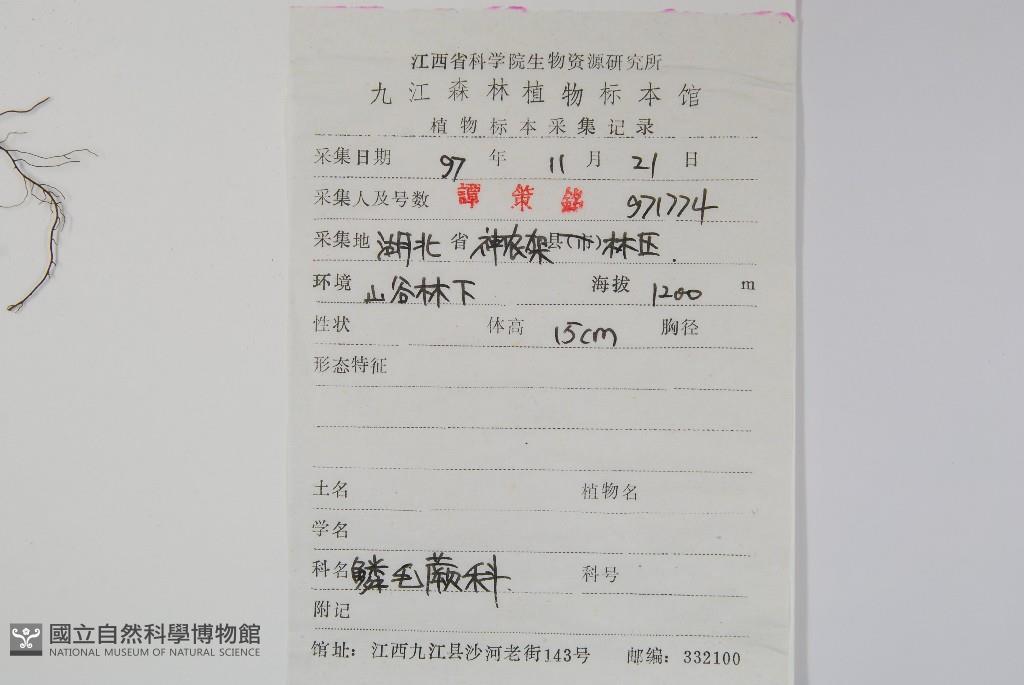 江西省科学院生物资源研究所
九江森林植物标本馆
植物标本采集记录
采集日期 97 年 11 月 21 日
采集人及号数 譚策銘 971774
采集地 湖北 省 神农架 县(市) 林区.
环境 山谷林下 海拔 1200 m
性状 体高 15cm 胸径
形态特征
土名 植物名
学名
科名 鳞毛蕨科 科号
附记
馆址: 江西九江县沙河老街143号 邮编: 332100
國立自然科學博物館
NATIONAL MUSEUM OF NATURAL SCIENCE